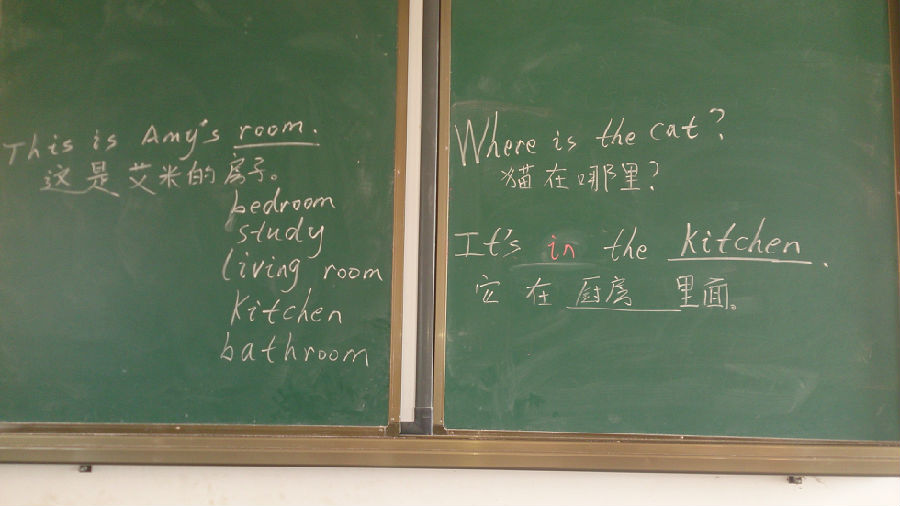 This is Amy's room.
这是艾米的房子。
bedroom
study
living room
kitchen
bathroom
Where is the cat?
猫在哪里?
It's in the kitchen.
它在厨房里面。